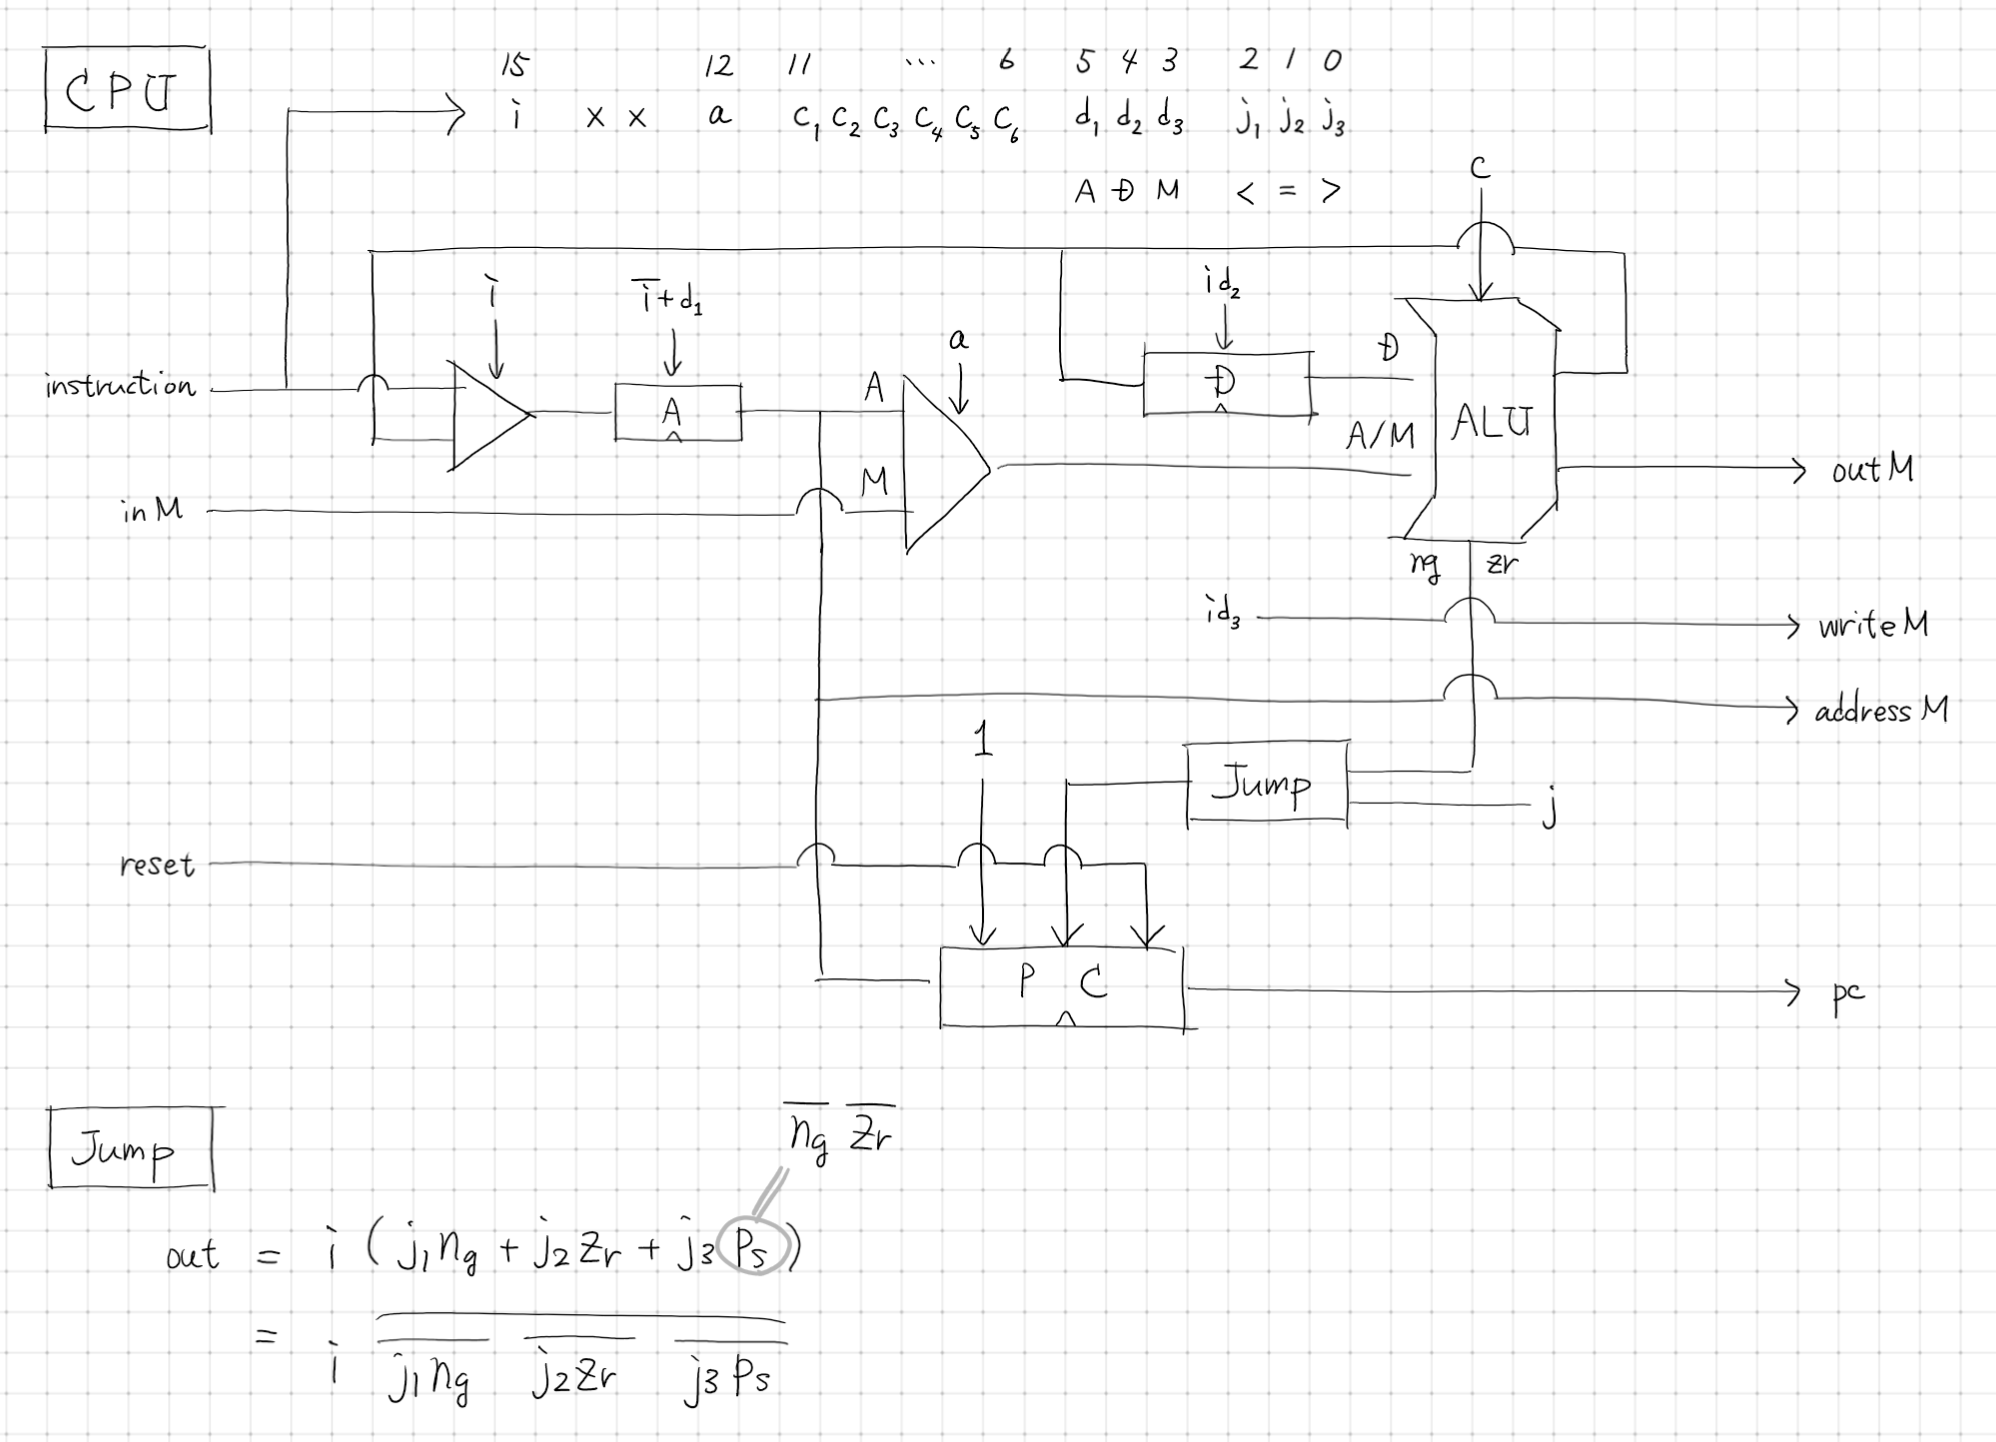 CPU
15 12 11 ... 6 5 4 3 2 1 0
i x x a c₁ c₂ c₃ c₄ c₅ c₆ d₁ d₂ d₃ j₁ j₂ j₃
A D M < = >
C
i
i̅+d₁
id₂
a
D
instruction
A
A
D
A/M
ALU
M
inM
outM
ng zr
id₃
writeM
addressM
1
Jump
j
reset
PC
pc
Jump
n̅g̅ z̅r̅
out = i (j₁ng + j₂zr + j₃ps)
= i j₁ng j₂zr j₃ps